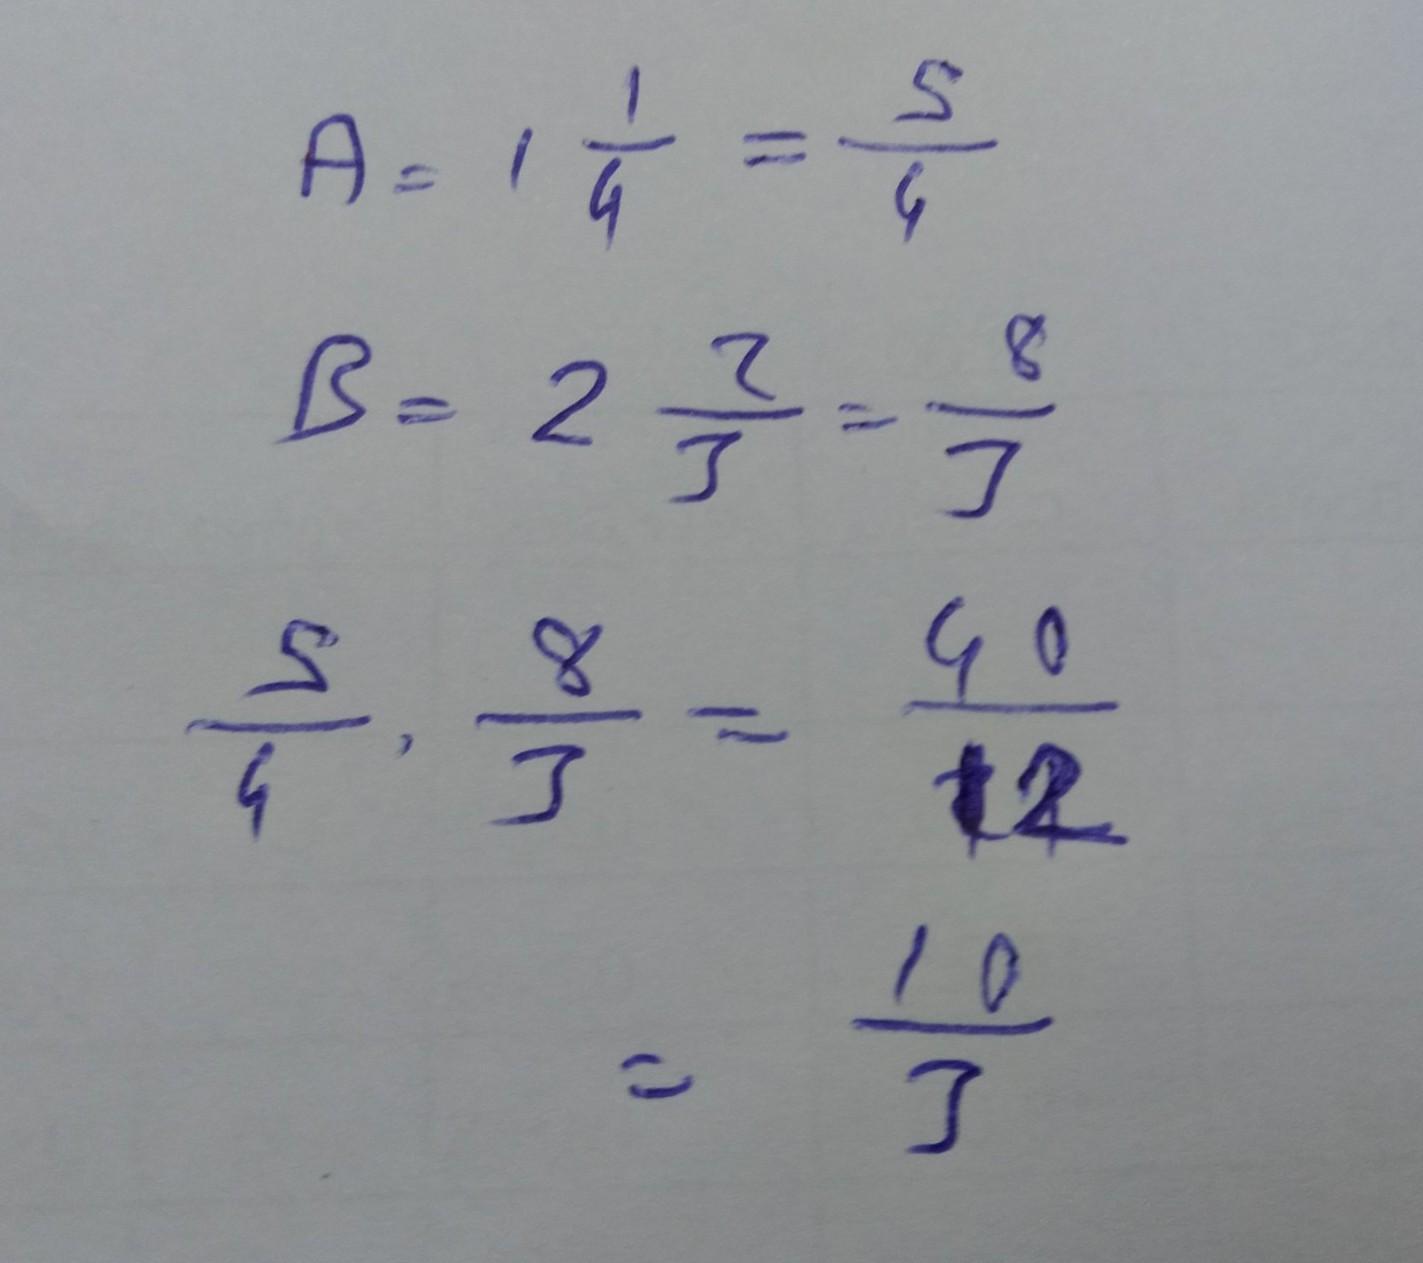 A = 1 1/4 = 5/4
B = 2 2/3 = 8/3
5/4 . 8/3 = 40/12
= 10/3